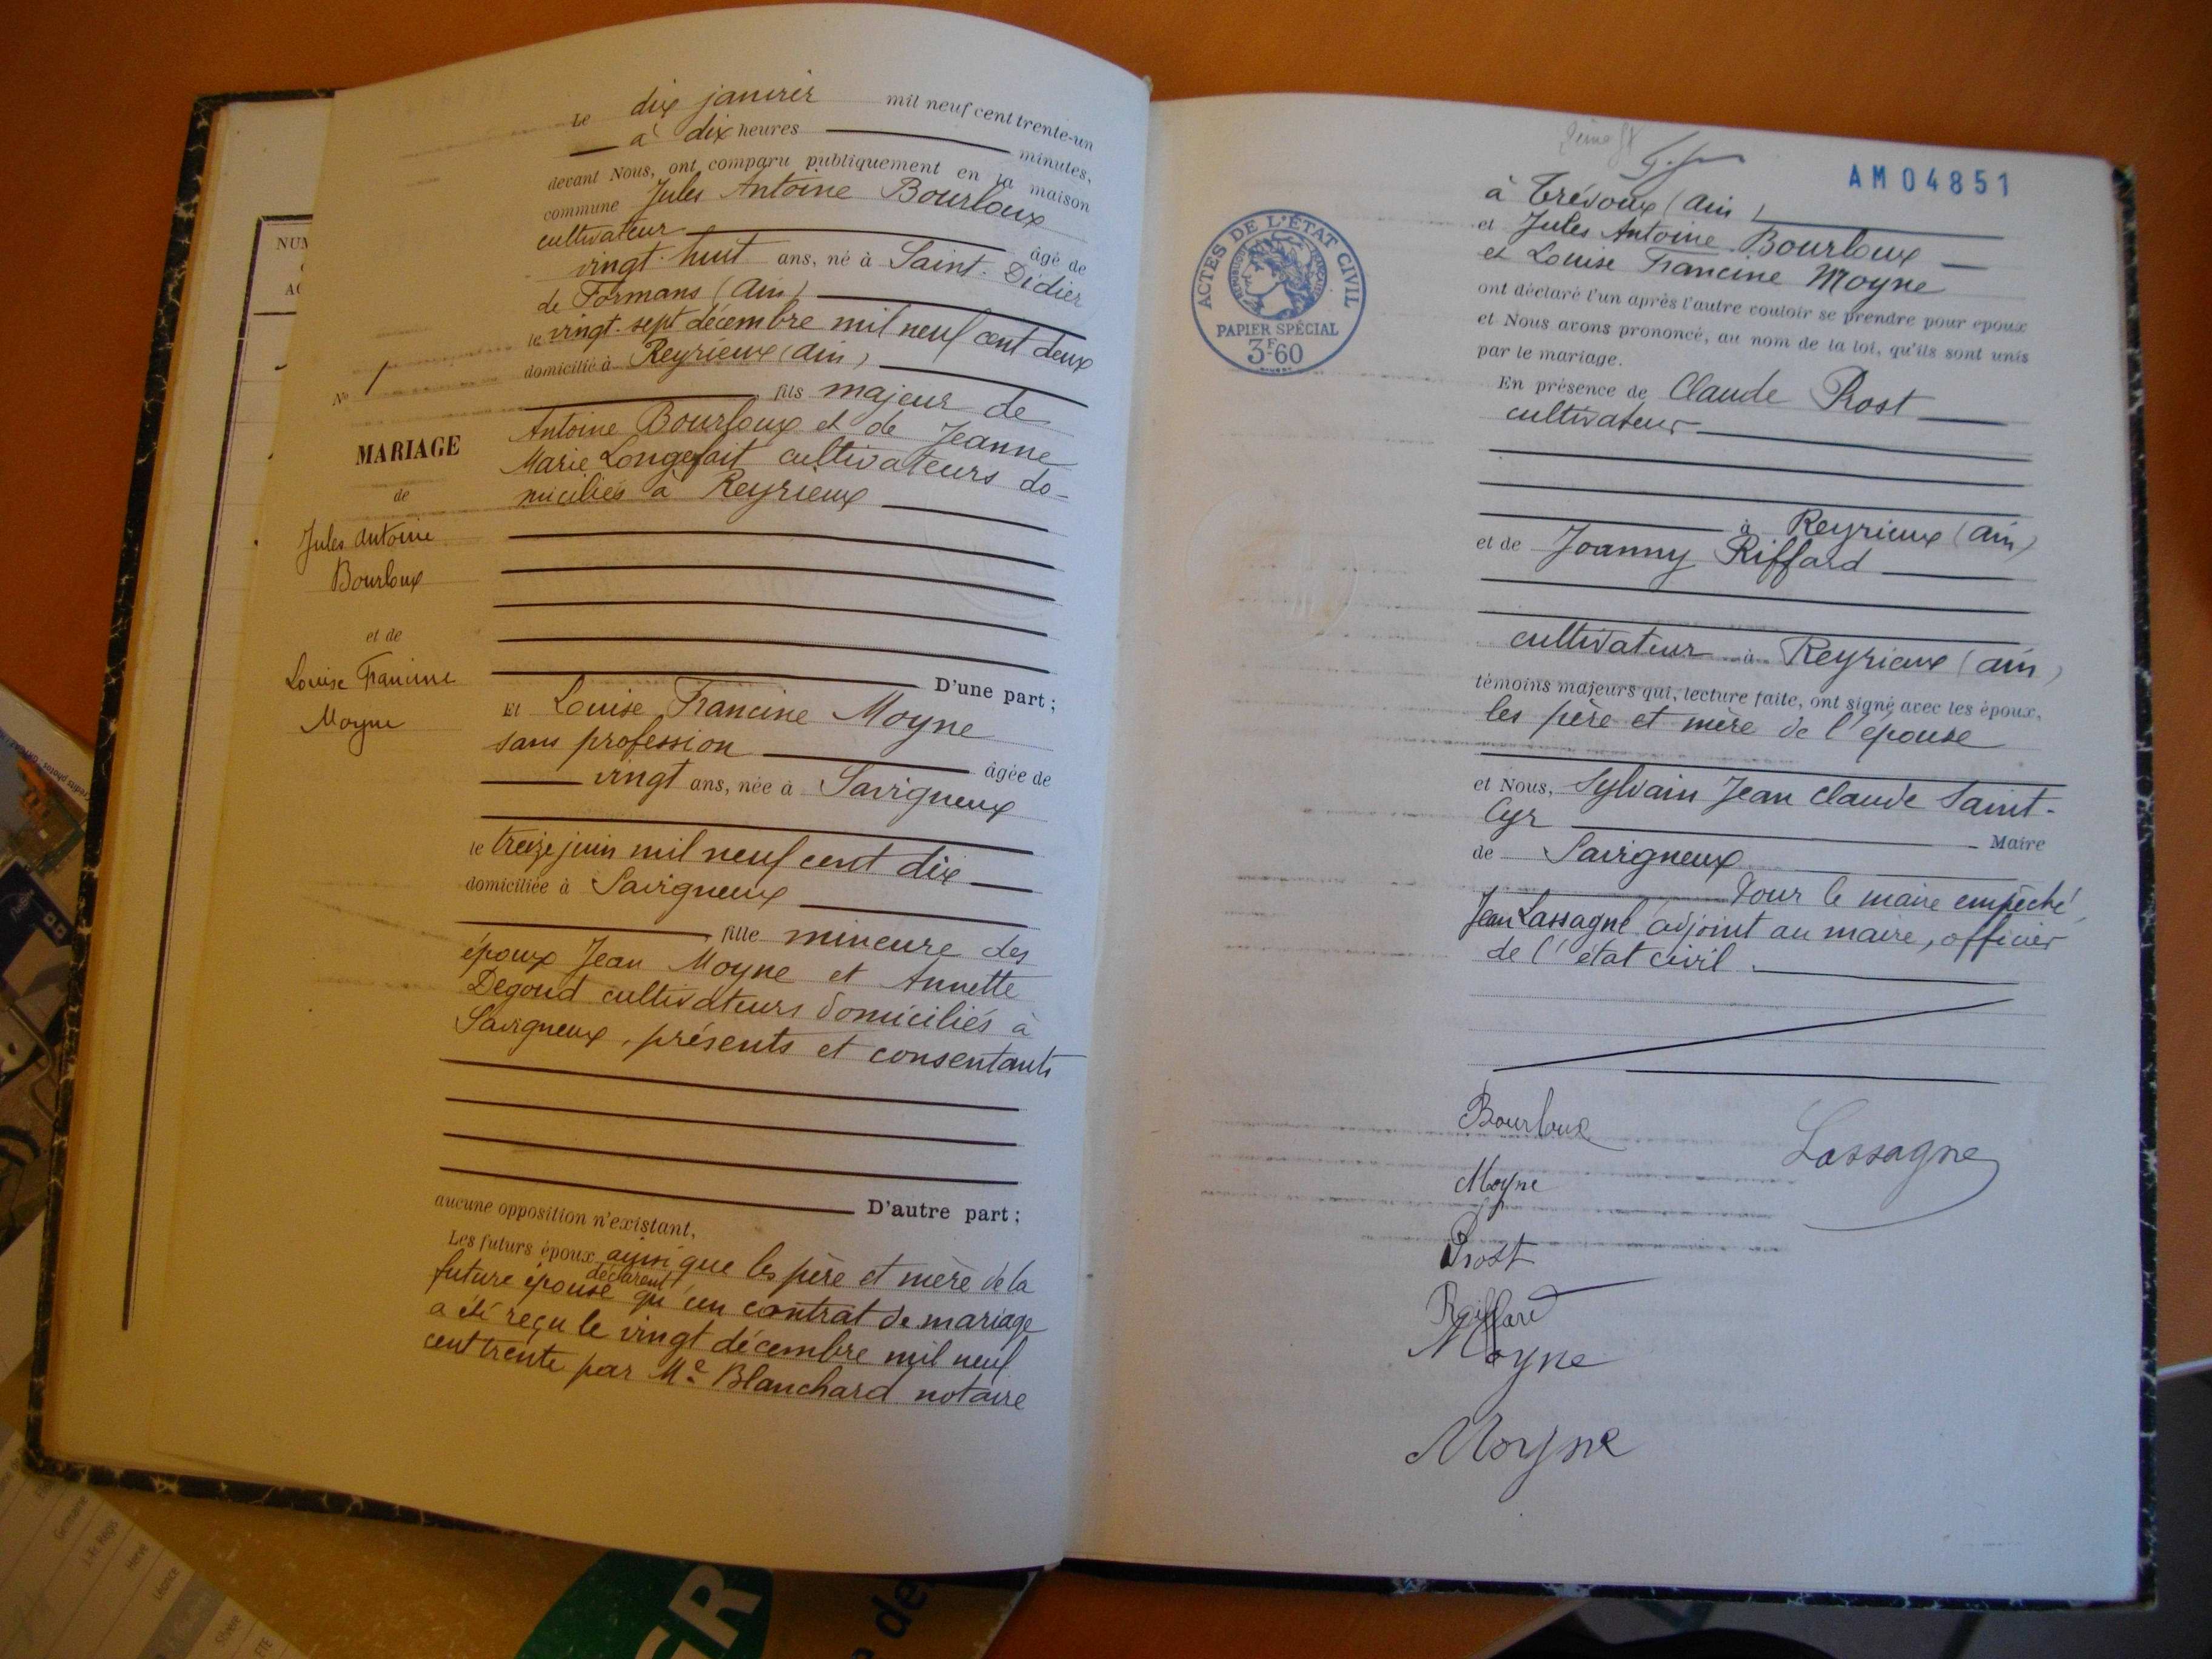 Le dix janvier mil neuf cent trente-un
à dix heures minutes,
devant Nous, ont comparu publiquement en la maison
commune Jules Antoine Bourloux
cultivateur âgé de
vingt-huit ans, né à Saint-Didier
de Formans (Ain)
le vingt-sept décembre mil neuf cent deux
domicilié à Reyrieux (Ain)
fils majeur de
Antoine Bourloux et de Jeanne
Marie Longefait cultivateurs do-
miciliés à Reyrieux
D'une part ;
Et Louise Francine Moyne
sans profession âgée de
vingt ans, née à Savigneux
le treize juin mil neuf cent dix
domiciliée à Savigneux
fille mineure des
époux Jean Moyne et Annette
Degoud cultivateurs domiciliés à
Savigneux, présents et consentants
D'autre part ;
aucune opposition n'existant,
Les futurs époux, ainsi que les père et mère de la
future épouse déclarent qu'un contrat de mariage
a été reçu le vingt décembre mil neuf
cent trente par Me Blanchard notaire
No 1
MARIAGE
de
Jules Antoine
Bourloux
et de
Louise Francine
Moyne
NUM
AC
AM04851
à Trévoux (Ain)
et Jules Antoine Bourloux
et Louise Francine Moyne
ont déclaré l'un après l'autre vouloir se prendre pour époux
et Nous avons prononcé, au nom de la loi, qu'ils sont unis
par le mariage.
En présence de Claude Prost
cultivateur
à Reyrieux (Ain)
et de Joanny Riffard
cultivateur à Reyrieux (Ain)
témoins majeurs qui, lecture faite, ont signé avec les époux,
les père et mère de l'épouse
et Nous, Sylvain Jean Claude Saint-
Cyr Maire
de Savigneux
Pour le maire empêché,
Jean Lassagne adjoint au maire, officier
de l'état civil.
Bourloux
Lassagne
Moyne
Prost
Raiffard
Moyne
Moyne
ACTES DE L'ÉTAT CIVIL
RÉPUBLIQUE FRANÇAISE
PAPIER SPÉCIAL
3F60
Germaine
J.Fr Régis
Hervé
Léonce
Silvère
GR
e de